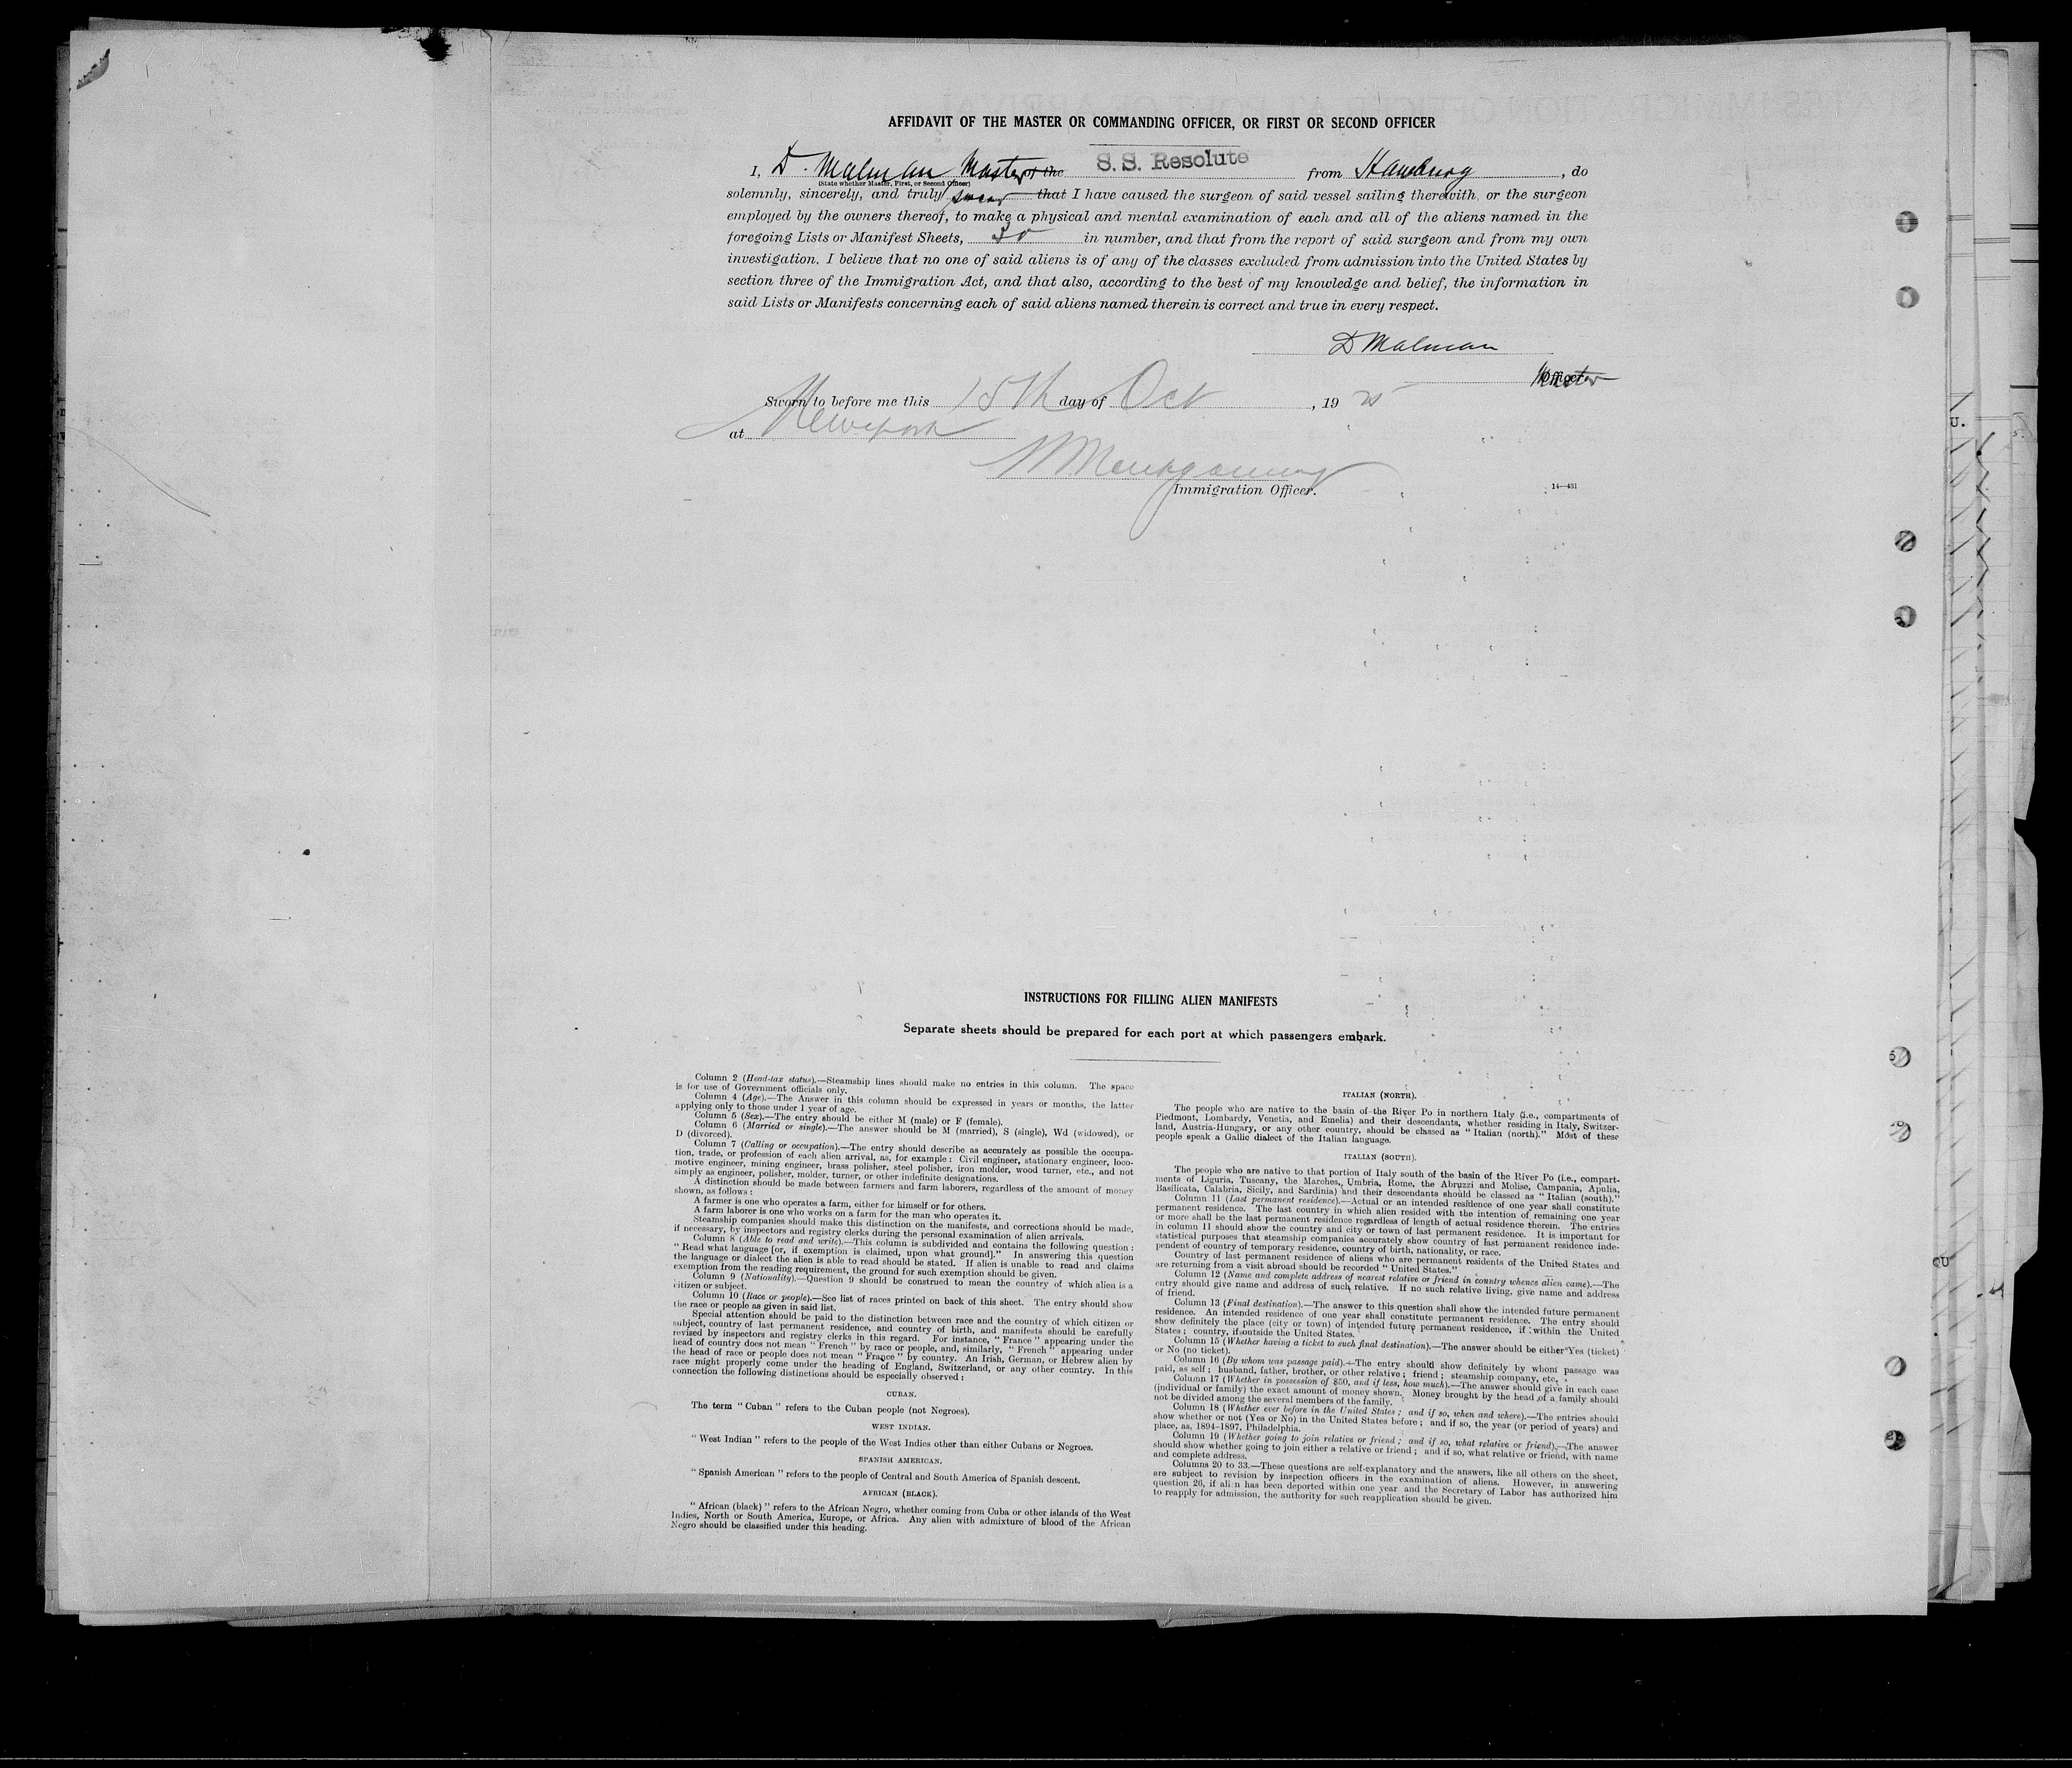 AFFIDAVIT OF THE MASTER OR COMMANDING OFFICER, OR FIRST OR SECOND OFFICER
I, D. Malman Master of the S. S. Resolute from Hamburg, do
(State whether Master, First, or Second Officer)
solemnly, sincerely, and truly swear that I have caused the surgeon of said vessel sailing therewith, or the surgeon
employed by the owners thereof, to make a physical and mental examination of each and all of the aliens named in the
foregoing Lists or Manifest Sheets, 30 in number, and that from the report of said surgeon and from my own
investigation, I believe that no one of said aliens is of any of the classes excluded from admission into the United States by
section three of the Immigration Act, and that also, according to the best of my knowledge and belief, the information in
said Lists or Manifests concerning each of said aliens named therein is correct and true in every respect.
D Malman
Master Officer.
Sworn to before me this 15th day of Oct, 19 25
at Newyork
Montgomery
Immigration Officer.
14—431
INSTRUCTIONS FOR FILLING ALIEN MANIFESTS
Separate sheets should be prepared for each port at which passengers embark.
Column 2 (Head-tax status).—Steamship lines should make no entries in this column. The space
is for use of Government officials only.
Column 4 (Age).—The Answer in this column should be expressed in years or months, the latter
applying only to those under 1 year of age.
Column 5 (Sex).—The entry should be either M (male) or F (female).
Column 6 (Married or single).—The answer should be M (married), S (single), Wd (widowed), or
D (divorced).
Column 7 (Calling or occupation).—The entry should describe as accurately as possible the occupa-
tion, trade, or profession of each alien arrival, as, for example: Civil engineer, stationary engineer, loco-
motive engineer, mining engineer, brass polisher, steel polisher, iron molder, wood turner, etc., and not
simply as engineer, polisher, molder, turner, or other indefinite designations.
A distinction should be made between farmers and farm laborers, regardless of the amount of money
shown, as follows:
A farmer is one who operates a farm, either for himself or for others.
A farm laborer is one who works on a farm for the man who operates it.
Steamship companies should make this distinction on the manifests, and corrections should be made,
if necessary, by inspectors and registry clerks during the personal examination of alien arrivals.
Column 8 (Able to read and write).—This column is subdivided and contains the following question:
"Read what language [or, if exemption is claimed, upon what ground]." In answering this question
the language or dialect the alien is able to read should be stated. If alien is unable to read and claims
exemption from the reading requirement, the ground for such exemption should be given.
Column 9 (Nationality).—Question 9 should be construed to mean the country of which alien is a
citizen or subject.
Column 10 (Race or people).—See list of races printed on back of this sheet. The entry should show
the race or people as given in said list.
Special attention should be paid to the distinction between race and the country of which citizen or
subject, country of last permanent residence, and country of birth, and manifests should be carefully
revised by inspectors and registry clerks in this regard. For instance, "France" appearing under the
head of country does not mean "French" by race or people, and, similarly, "French" appearing under
the head of race or people does not mean "France" by country. An Irish, German, or Hebrew alien by
race might properly come under the heading of England, Switzerland, or any other country. In this
connection the following distinctions should be especially observed:
CUBAN.
The term "Cuban" refers to the Cuban people (not Negroes).
WEST INDIAN.
"West Indian" refers to the people of the West Indies other than either Cubans or Negroes.
SPANISH AMERICAN.
"Spanish American" refers to the people of Central and South America of Spanish descent.
AFRICAN (BLACK).
"African (black)" refers to the African Negro, whether coming from Cuba or other islands of the West
Indies, North or South America, Europe, or Africa. Any alien with admixture of blood of the African
Negro should be classified under this heading.
ITALIAN (NORTH).
The people who are native to the basin of the River Po in northern Italy (i.e., compartments of
Piedmont, Lombardy, Venetia, and Emelia) and their descendants, whether residing in Italy, Switzer-
land, Austria-Hungary, or any other country, should be classed as "Italian (north)." Most of these
people speak a Gallic dialect of the Italian language.
ITALIAN (SOUTH).
The people who are native to that portion of Italy south of the basin of the River Po (i.e., compart-
ments of Liguria, Tuscany, the Marches, Umbria, Rome, the Abruzzi and Molise, Campania, Apulia,
Basilicata, Calabria, Sicily, and Sardinia) and their descendants should be classed as "Italian (south)."
Column 11 (Last permanent residence).—Actual or an intended residence of one year shall constitute
permanent residence. The last country in which alien resided with the intention of remaining one year
or more shall be the last permanent residence regardless of length of actual residence therein. The entries
in column 11 should show the country and city or town of last permanent residence. It is important for
statistical purposes that steamship companies accurately show country of last permanent residence inde-
pendent of country of temporary residence, country of birth, nationality, or race.
Country of last permanent residence of aliens who are permanent residents of the United States and
are returning from a visit abroad should be recorded "United States."
Column 12 (Name and complete address of nearest relative or friend in country whence alien came).—The
entry should give name and address of such relative. If no such relative living, give name and address
of friend.
Column 13 (Final destination).—The answer to this question shall show the intended future permanent
residence. An intended residence of one year shall constitute permanent residence. The entry should
show definitely the place (city or town) of intended future permanent residence, if within the United
States; country, if outside the United States.
Column 15 (Whether having a ticket to such final destination).—The answer should be either Yes (ticket)
or No (no ticket).
Column 16 (By whom was passage paid).—The entry should show definitely by whom passage was
paid, as self; husband, father, brother, or other relative; friend; steamship company, etc.
Column 17 (Whether in possession of $50, and if less, how much).—The answer should give in each case
(individual or family) the exact amount of money shown. Money brought by the head of a family should
not be divided among the several members of the family.
Column 18 (Whether ever before in the United States; and if so, when and where).—The entries should
show whether or not (Yes or No) in the United States before; and if so, the year (or period of years) and
place, as, 1894-1897, Philadelphia.
Column 19 (Whether going to join relative or friend; and if so, what relative or friend).—The answer
should show whether going to join either a relative or friend; and if so, what relative or friend, with name
and complete address.
Columns 20 to 33.—These questions are self-explanatory and the answers, like all others on the sheet,
are subject to revision by inspection officers in the examination of aliens. However, in answering
question 26, if alien has been deported within one year and the Secretary of Labor has authorized him
to reapply for admission, the authority for such reapplication should be given.